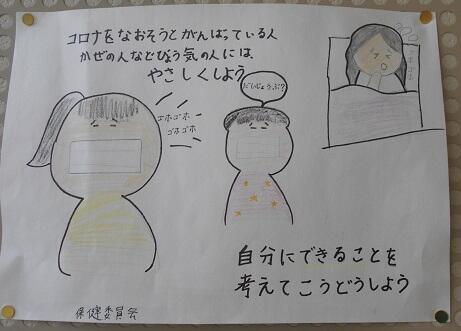 コロナをなおそうとがんばっている人
かぜの人などびょう気の人には、
やさしくしよう
ゴホゴホ
ゴホゴホ
だいじょうぶ?
自分にできることを
考えてこうどうしよう
保健委員会